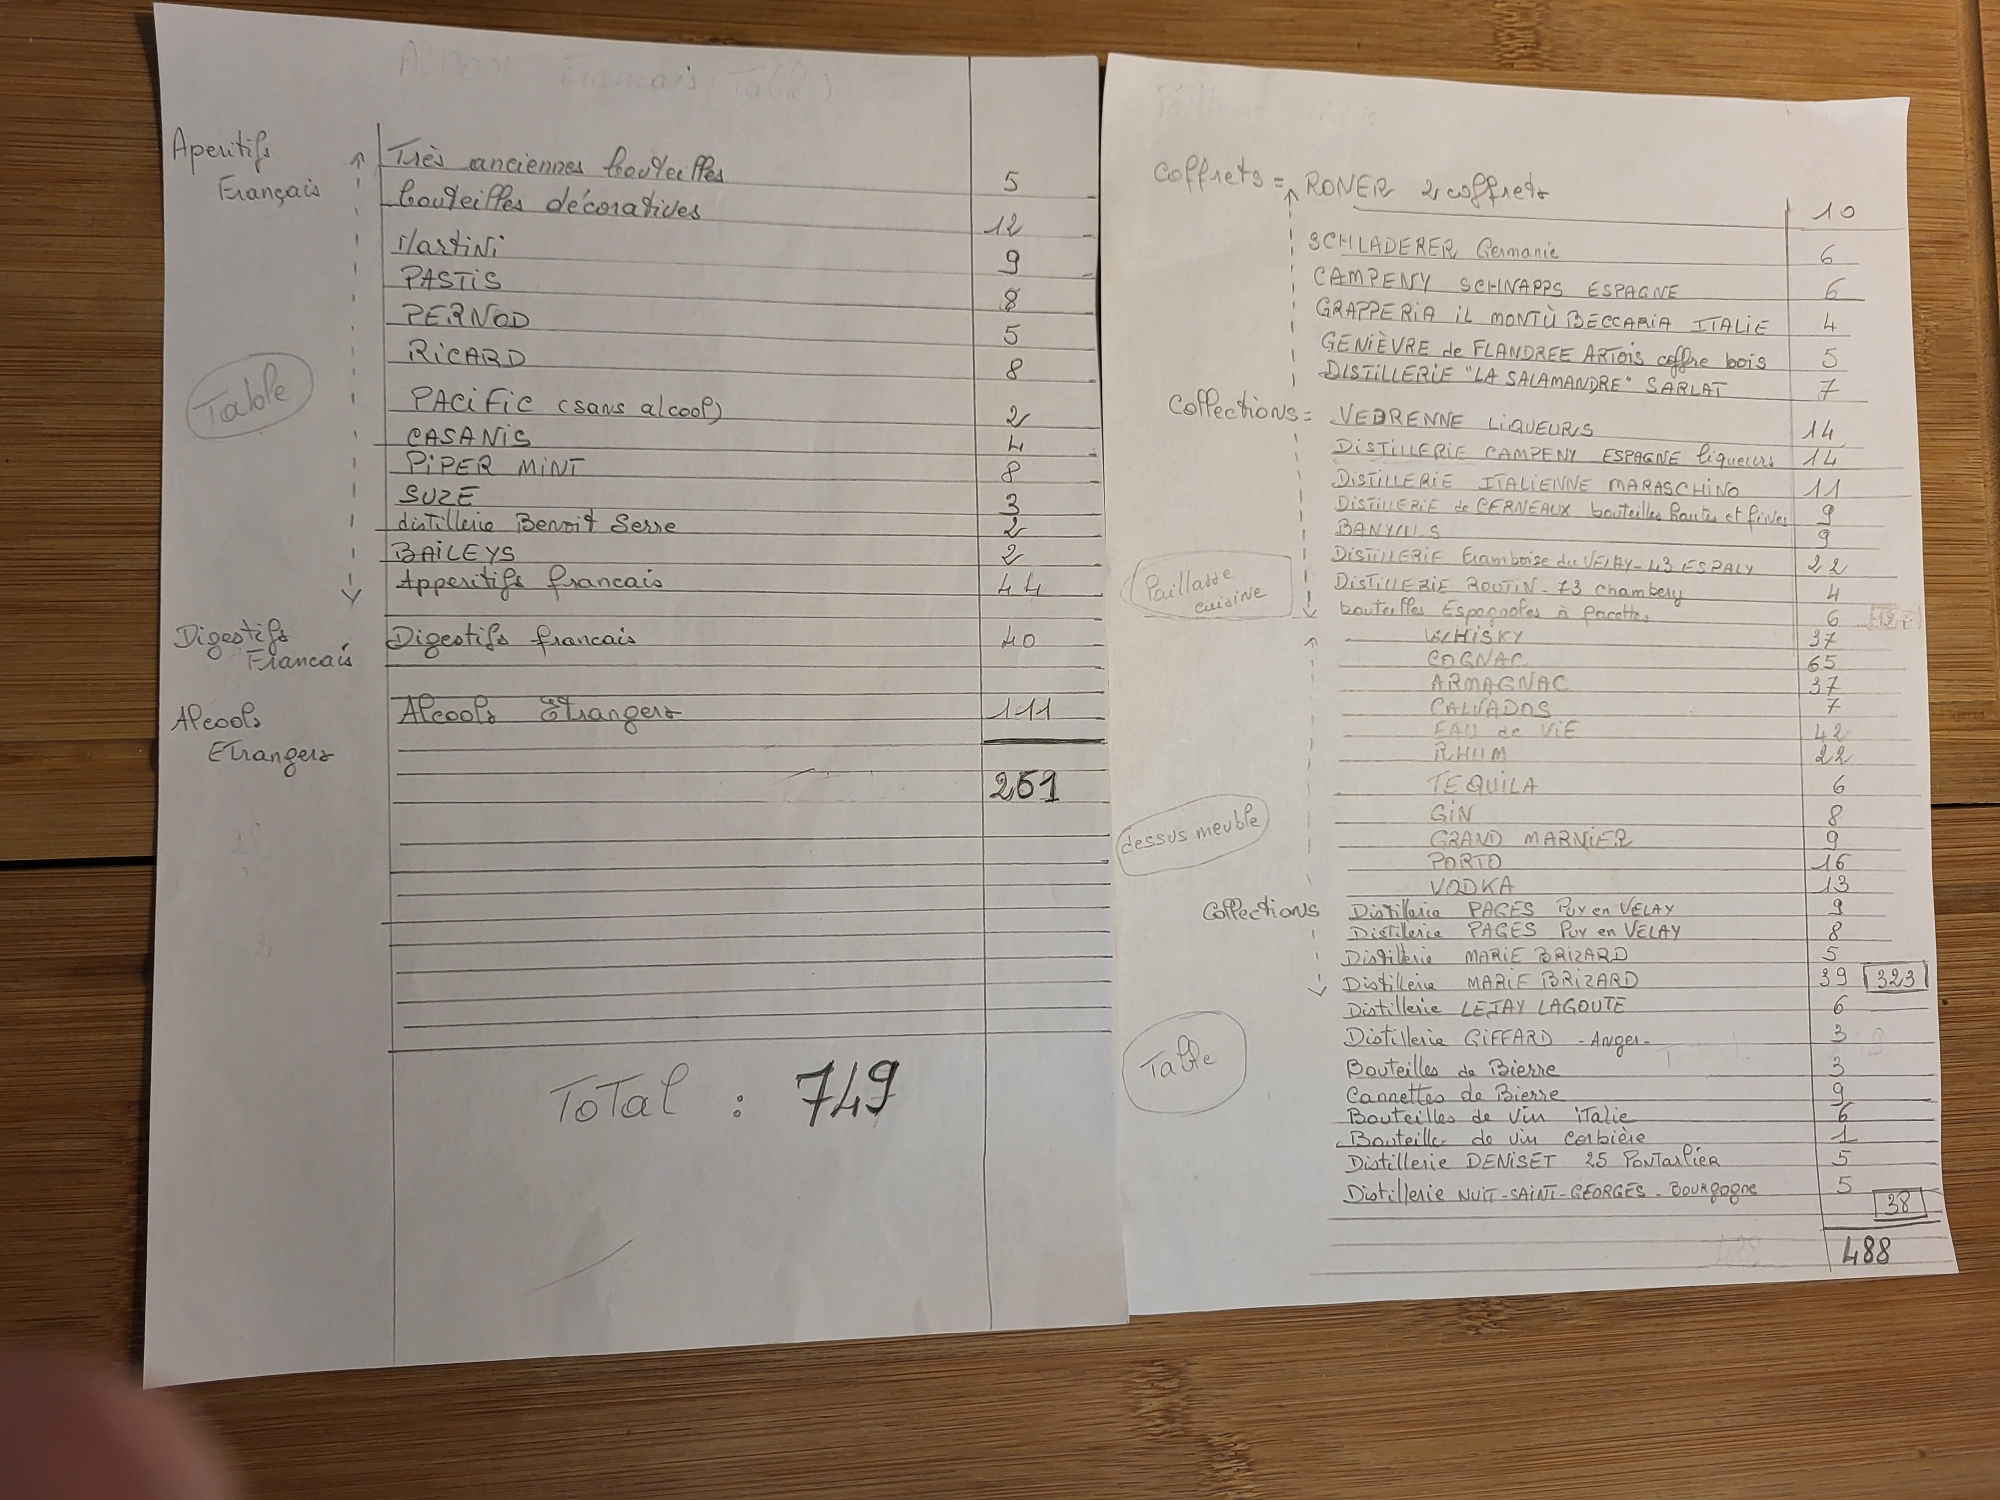 Aperitifs Français
Très anciennes bouteilles 5
bouteilles décoratives 12
Martini 9
PASTIS 8
PERNOD 5
RICARD 8
Table
PACIFIC (sans alcool) 2
CASANIS 4
PIPER MINT 8
SUZE 3
distillerie Benoit Serre 2
BAILEYS 2
Apperitifs francais 44
Digestifs Francais
Digestifs francais 40
Alcools Etrangers
Alcools Etrangers 111
261
Total : 749
Coffrets = RONER 2 coffrets 10
SCHLADERER Germanie 6
CAMPENY SCHNAPPS ESPAGNE 6
GRAPPERIA IL MONTÙ BECCARIA ITALIE 4
GENIÈVRE de FLANDREE ARTOIS coffre bois 5
DISTILLERIE "LA SALAMANDRE" SARLAT 7
Collections = VEDRENNE LIQUEURS 14
DISTILLERIE CAMPENY ESPAGNE liqueurs 14
DISTILLERIE ITALIENNE MARASCHINO 11
DISTILLERIE de CERNEAUX bouteilles hautes et fines 9
BANYULS 9
DISTILLERIE Framboise du VELAY-43 ESPALY 22
Paillasse cuisine
DISTILLERIE ROUTIN-73 Chambery 4
bouteilles Espagnoles à facettes 6
WHISKY 37
COGNAC 65
ARMAGNAC 37
CALVADOS 7
EAU de VIE 42
RHUM 22
TEQUILA 6
GIN 8
dessus meuble
GRAND MARNIER 9
PORTO 16
VODKA 13
Collections Distillerie PAGES Puy en VELAY 9
Distillerie PAGES Puy en VELAY 8
Distillerie MARIE BRIZARD 5
Distillerie MARIE BRIZARD 39 323
Distillerie LEJAY LAGOUTE 6
Distillerie GIFFARD - Anger- 3
Table
Bouteilles de Bierre 3
Cannettes de Bierre 9
Bouteilles de vin italie 6
Bouteille de vin corbière 1
Distillerie DENISET 25 PONTARLIER 5
Distillerie NUIT-SAINT-GEORGES - BOURgogne 5
38
488